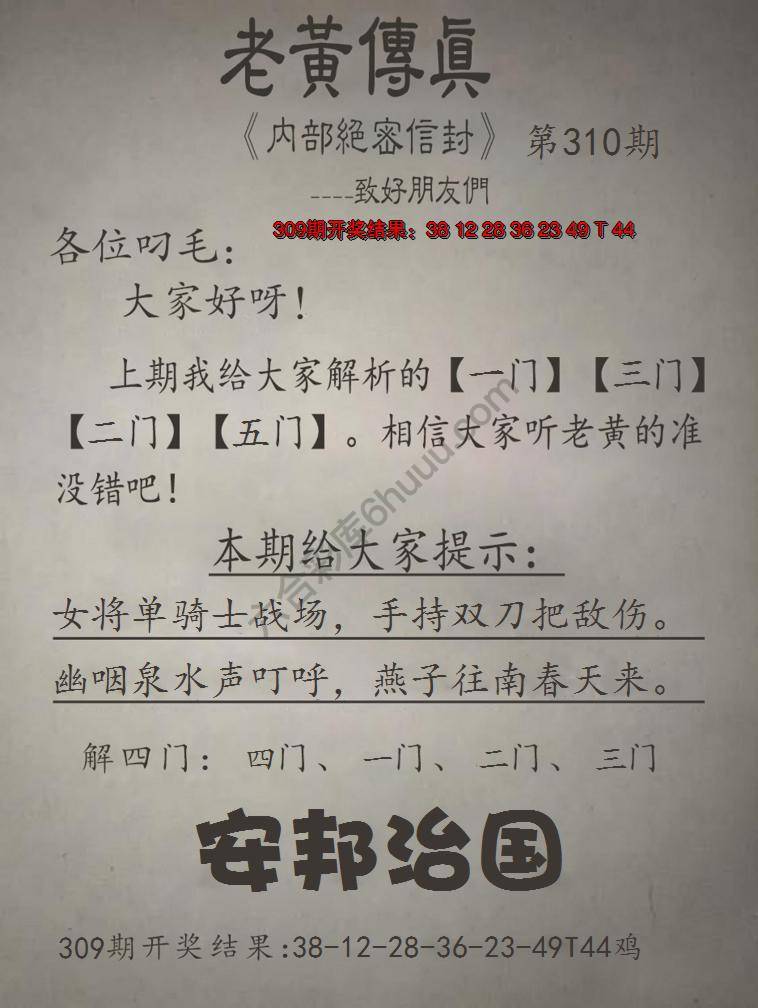 老黃傳眞
《內部絕密信封》 第310期
----致好朋友們
309期开奖结果：38 12 28 36 23 49 T 44
各位叼毛：
大家好呀！
上期我给大家解析的【一门】【三门】
【二门】【五门】。相信大家听老黄的准
没错吧！
本期给大家提示：
女将单骑士战场，手持双刀把敌伤。
幽咽泉水声叮呼，燕子往南春天来。
解四门： 四门、 一门、 二门、 三门
安邦治国
309期开奖结果:38-12-28-36-23-49T44鸡
六合彩库6huuu.com